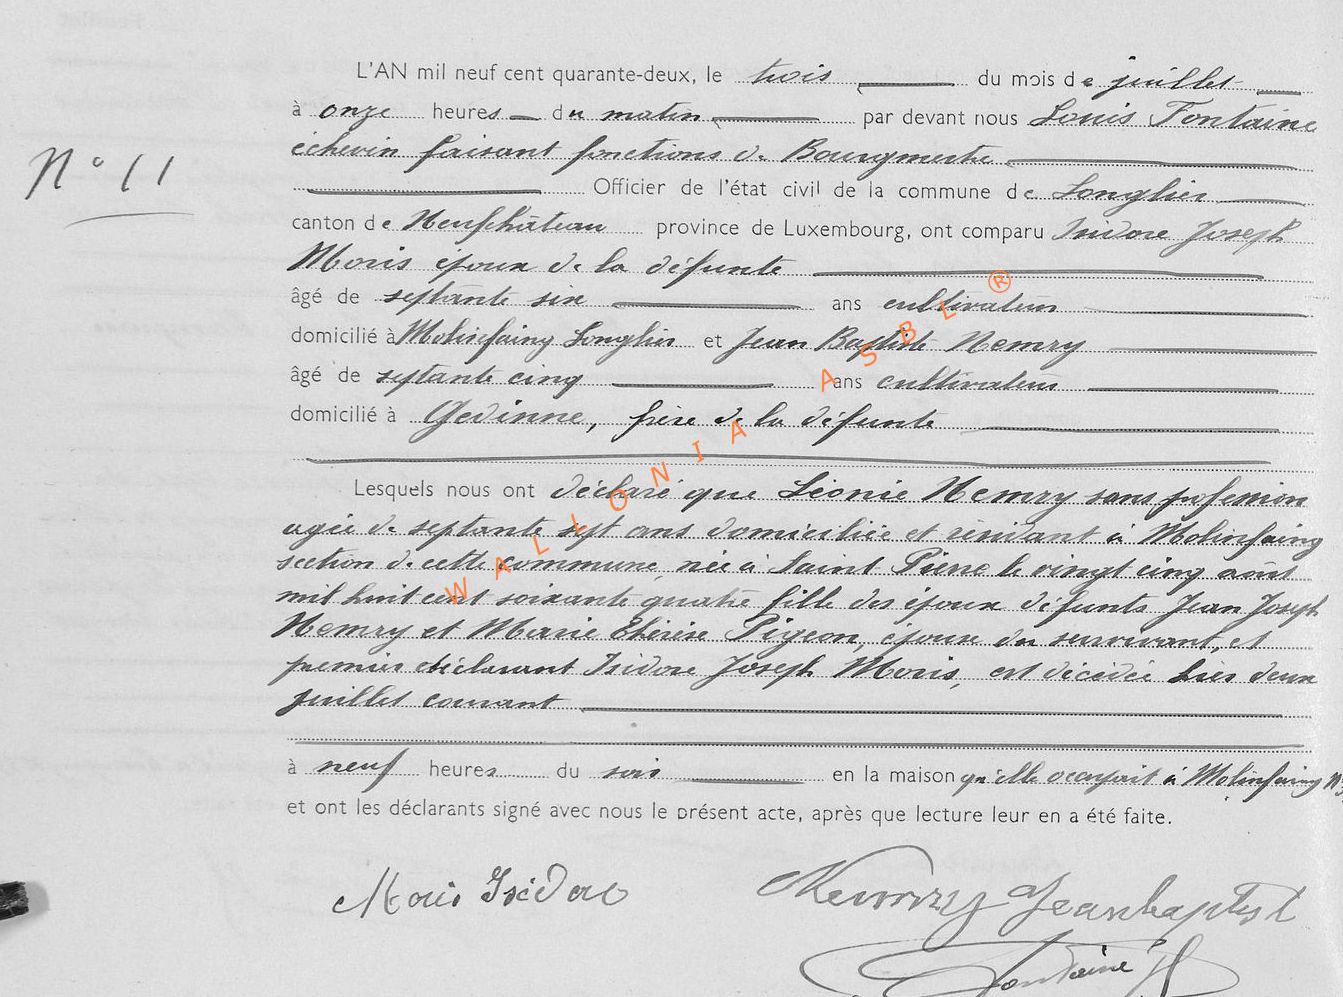 L'AN mil neuf cent quarante-deux, le trois du mois de juillet
à onze heures du matin par devant nous Louis Fontaine
échevin faisant fonctions de Bourgmestre
N° 11
Officier de l'état civil de la commune de Longlier
canton de Neufchâteau province de Luxembourg, ont comparu Isidore Joseph
Moris époux de la défunte
âgé de septante six ans cultivateur
domicilié à Molinfaing Longlier et Jean Baptiste Nemry
âgé de septante cinq ans cultivateur
domicilié à Gedinne, frère de la défunte
Lesquels nous ont déclaré que Léonie Nemry sans profession
agée de septante sept ans domiciliée et résidant à Molinfaing
section de cette commune, née à Saint Pierre le vingt cinq août
mil huit cent soixante quatre fille des époux défunts Jean Joseph
Nemry et Marie Thérèse Pigeon, épouse du survivant, et
premier déclarant Isidore Joseph Moris, est décédée hier deux
juillet courant
à neuf heures du soir en la maison qu'elle occupait à Molinfaing
et ont les déclarants signé avec nous le présent acte, après que lecture leur en a été faite.
Moris Isidore
Nemry Jeanbaptist
Fontaine
WALLONIA ASBL ®